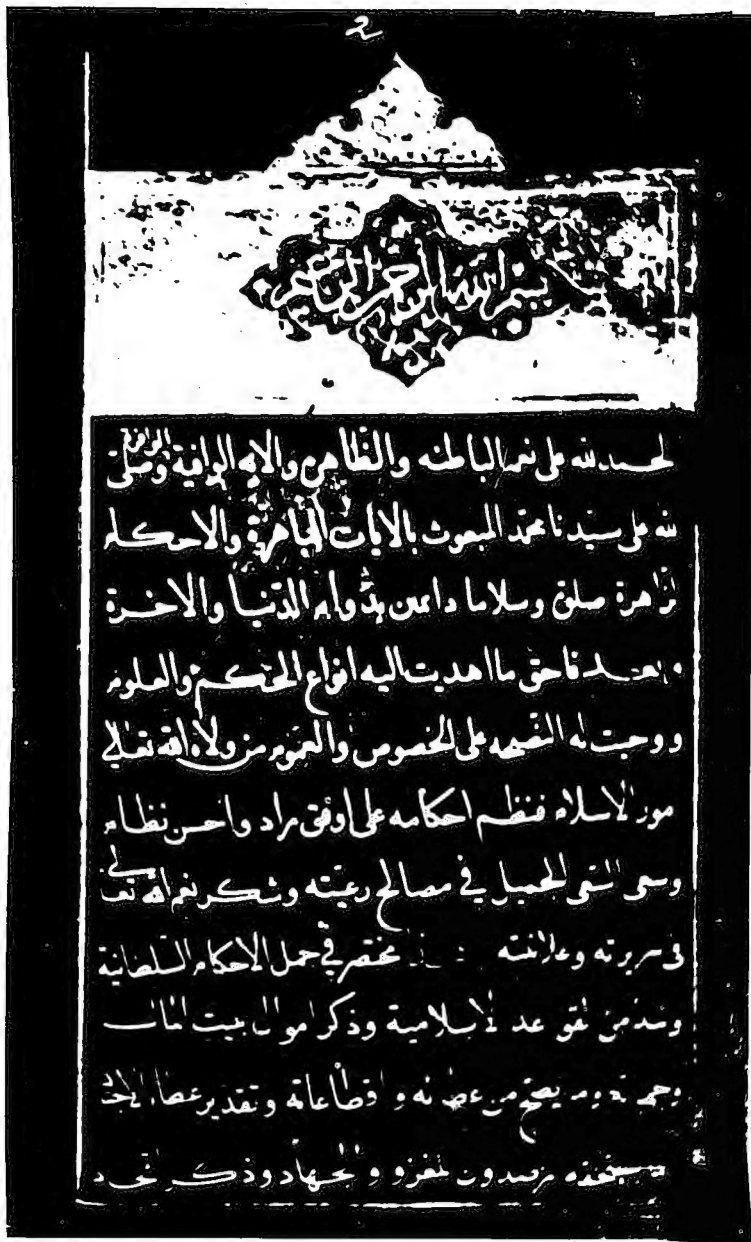 2
بسم الله الرحمن الرحيم
لحمد لله على نعمه الباطنه والظاهرة والايه الوافية الوافرة وصلى
لله على سيدنا محمد المبعوث بالايات الباهرة والاحكام
لزاهرة صلوة وسلاما دائمين بدوام الدنيا والاخرة
وبعد فاحق ما اهديت اليه انواع الحكم والعلوم
ووجبت له النصيحه على الخصوص والعموم من ولاه الله تعالى
مور الاسلام فنظم احكامه على اوفق مراد واحسن نظام
وسعى السعى الجميل في مصالح رعيته وشكر نعم الله تعالى
في سريرته وعلانيته مختصر في جمل الاحكام السلطانية
ونبذ من لقواعد لاسلامية وذكر اموال بيت المال
وجهاته وما يصح من عطائه واقطاعاته وتقدير عطاء الاجناد
يستحقه مرصدون لغزو والجهاد وذكر